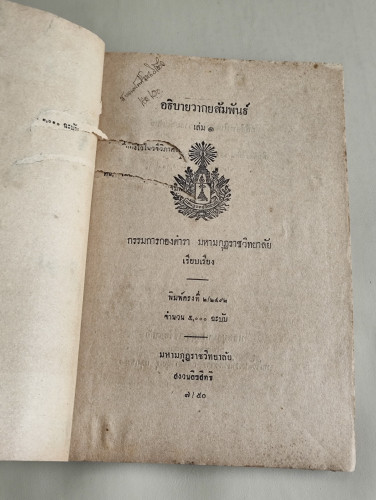 ๑,๐๐๐ ฉะบับ
อธิบายวากยสัมพันธ์
เล่ม ๑
กรรมการกองตำรา มหามกุฏราชวิทยาลัย
เรียบเรียง
พิมพ์ครั้งที่ ๒/๒๔๙๒
จำนวน ๕,๐๐๐ ฉะบับ
มหามกุฏราชวิทยาลัย
สงวนลิขสิทธิ์
๗/๕๐